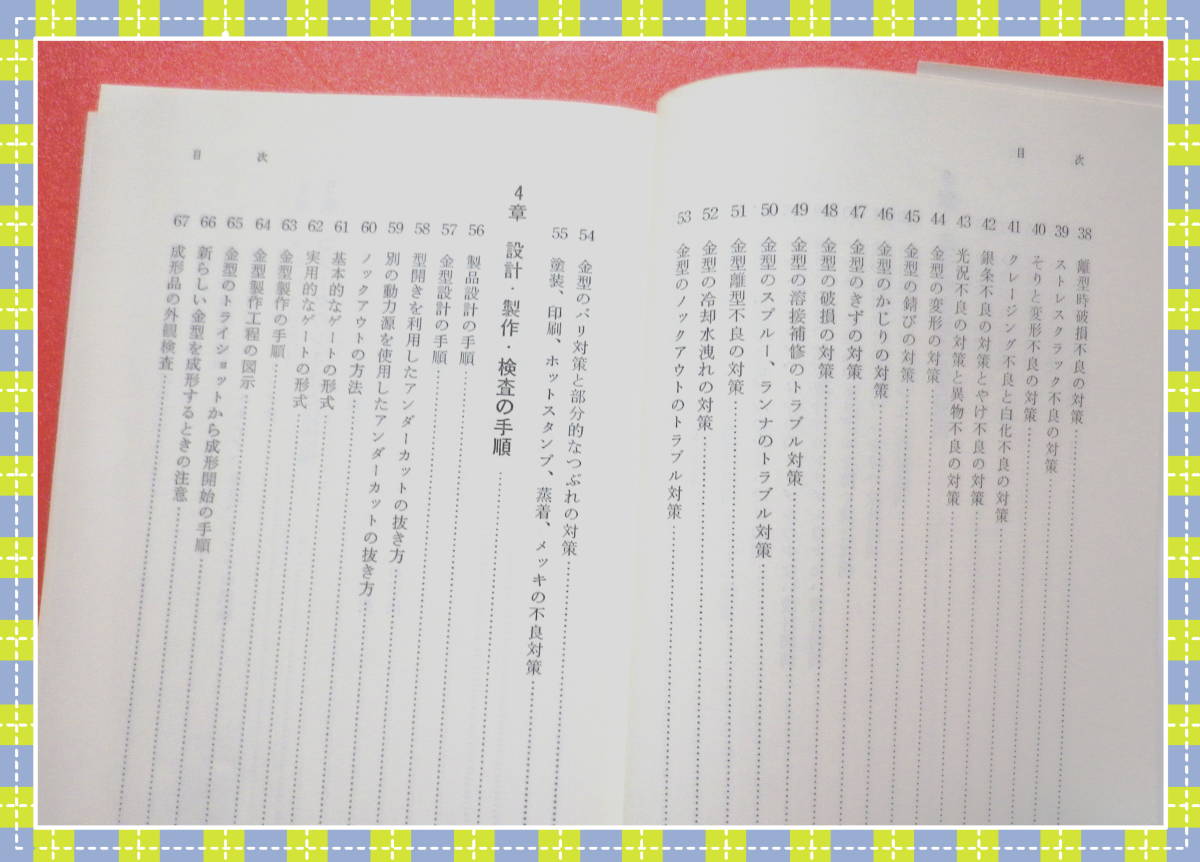 目次
38 離型時破損不良の対策
39 ストレスクラック不良の対策
40 そりと変形不良の対策
41 クレージング不良と白化不良の対策
42 銀条不良の対策とやけ不良の対策
43 光況不良の対策と異物不良の対策
44 金型の変形の対策
45 金型の錆びの対策
46 金型のかじりの対策
47 金型のきずの対策
48 金型の破損の対策
49 金型の溶接補修のトラブル対策
50 金型のスプルー、ランナのトラブル対策
51 金型離型不良の対策
52 金型の冷却水洩れの対策
53 金型のノックアウトのトラブル対策
目次
54 金型のバリ対策と部分的なつぶれの対策
55 塗装、印刷、ホットスタンプ、蒸着、メッキの不良対策
4章 設計・製作・検査の手順
56 製品設計の手順
57 金型設計の手順
58 型開きを利用したアンダーカットの抜き方
59 別の動力源を使用したアンダーカットの抜き方
60 ノックアウトの方法
61 基本的なゲートの形式
62 実用的なゲートの形式
63 金型製作の手順
64 金型製作工程の図示
65 金型のトライショットから成形開始の手順
66 新らしい金型を成形するときの注意
67 成形品の外観検査